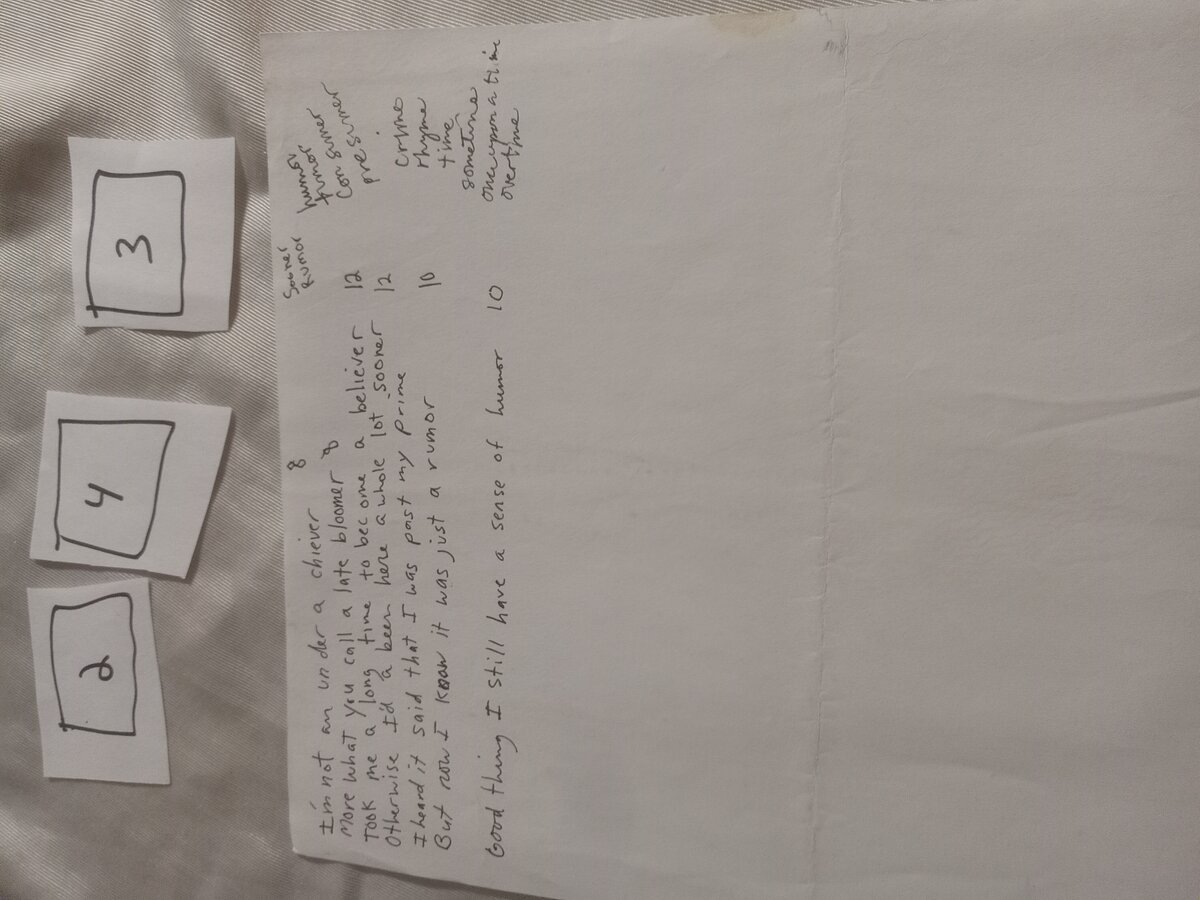 2
4
3
I'm not an under a chiever 8
More what you call a late bloomer 8
Took me a long time to become a believer 12
Otherwise I'd a been here a whole lot sooner 12
I heard it said that I was past my prime
But now I know it was just a rumor 10
Good thing I still have a sense of humor 10
sooner
rumor
humor
tumor
consumer
presumer
crime
rhyme
time
sometime
once upon a time
overtime